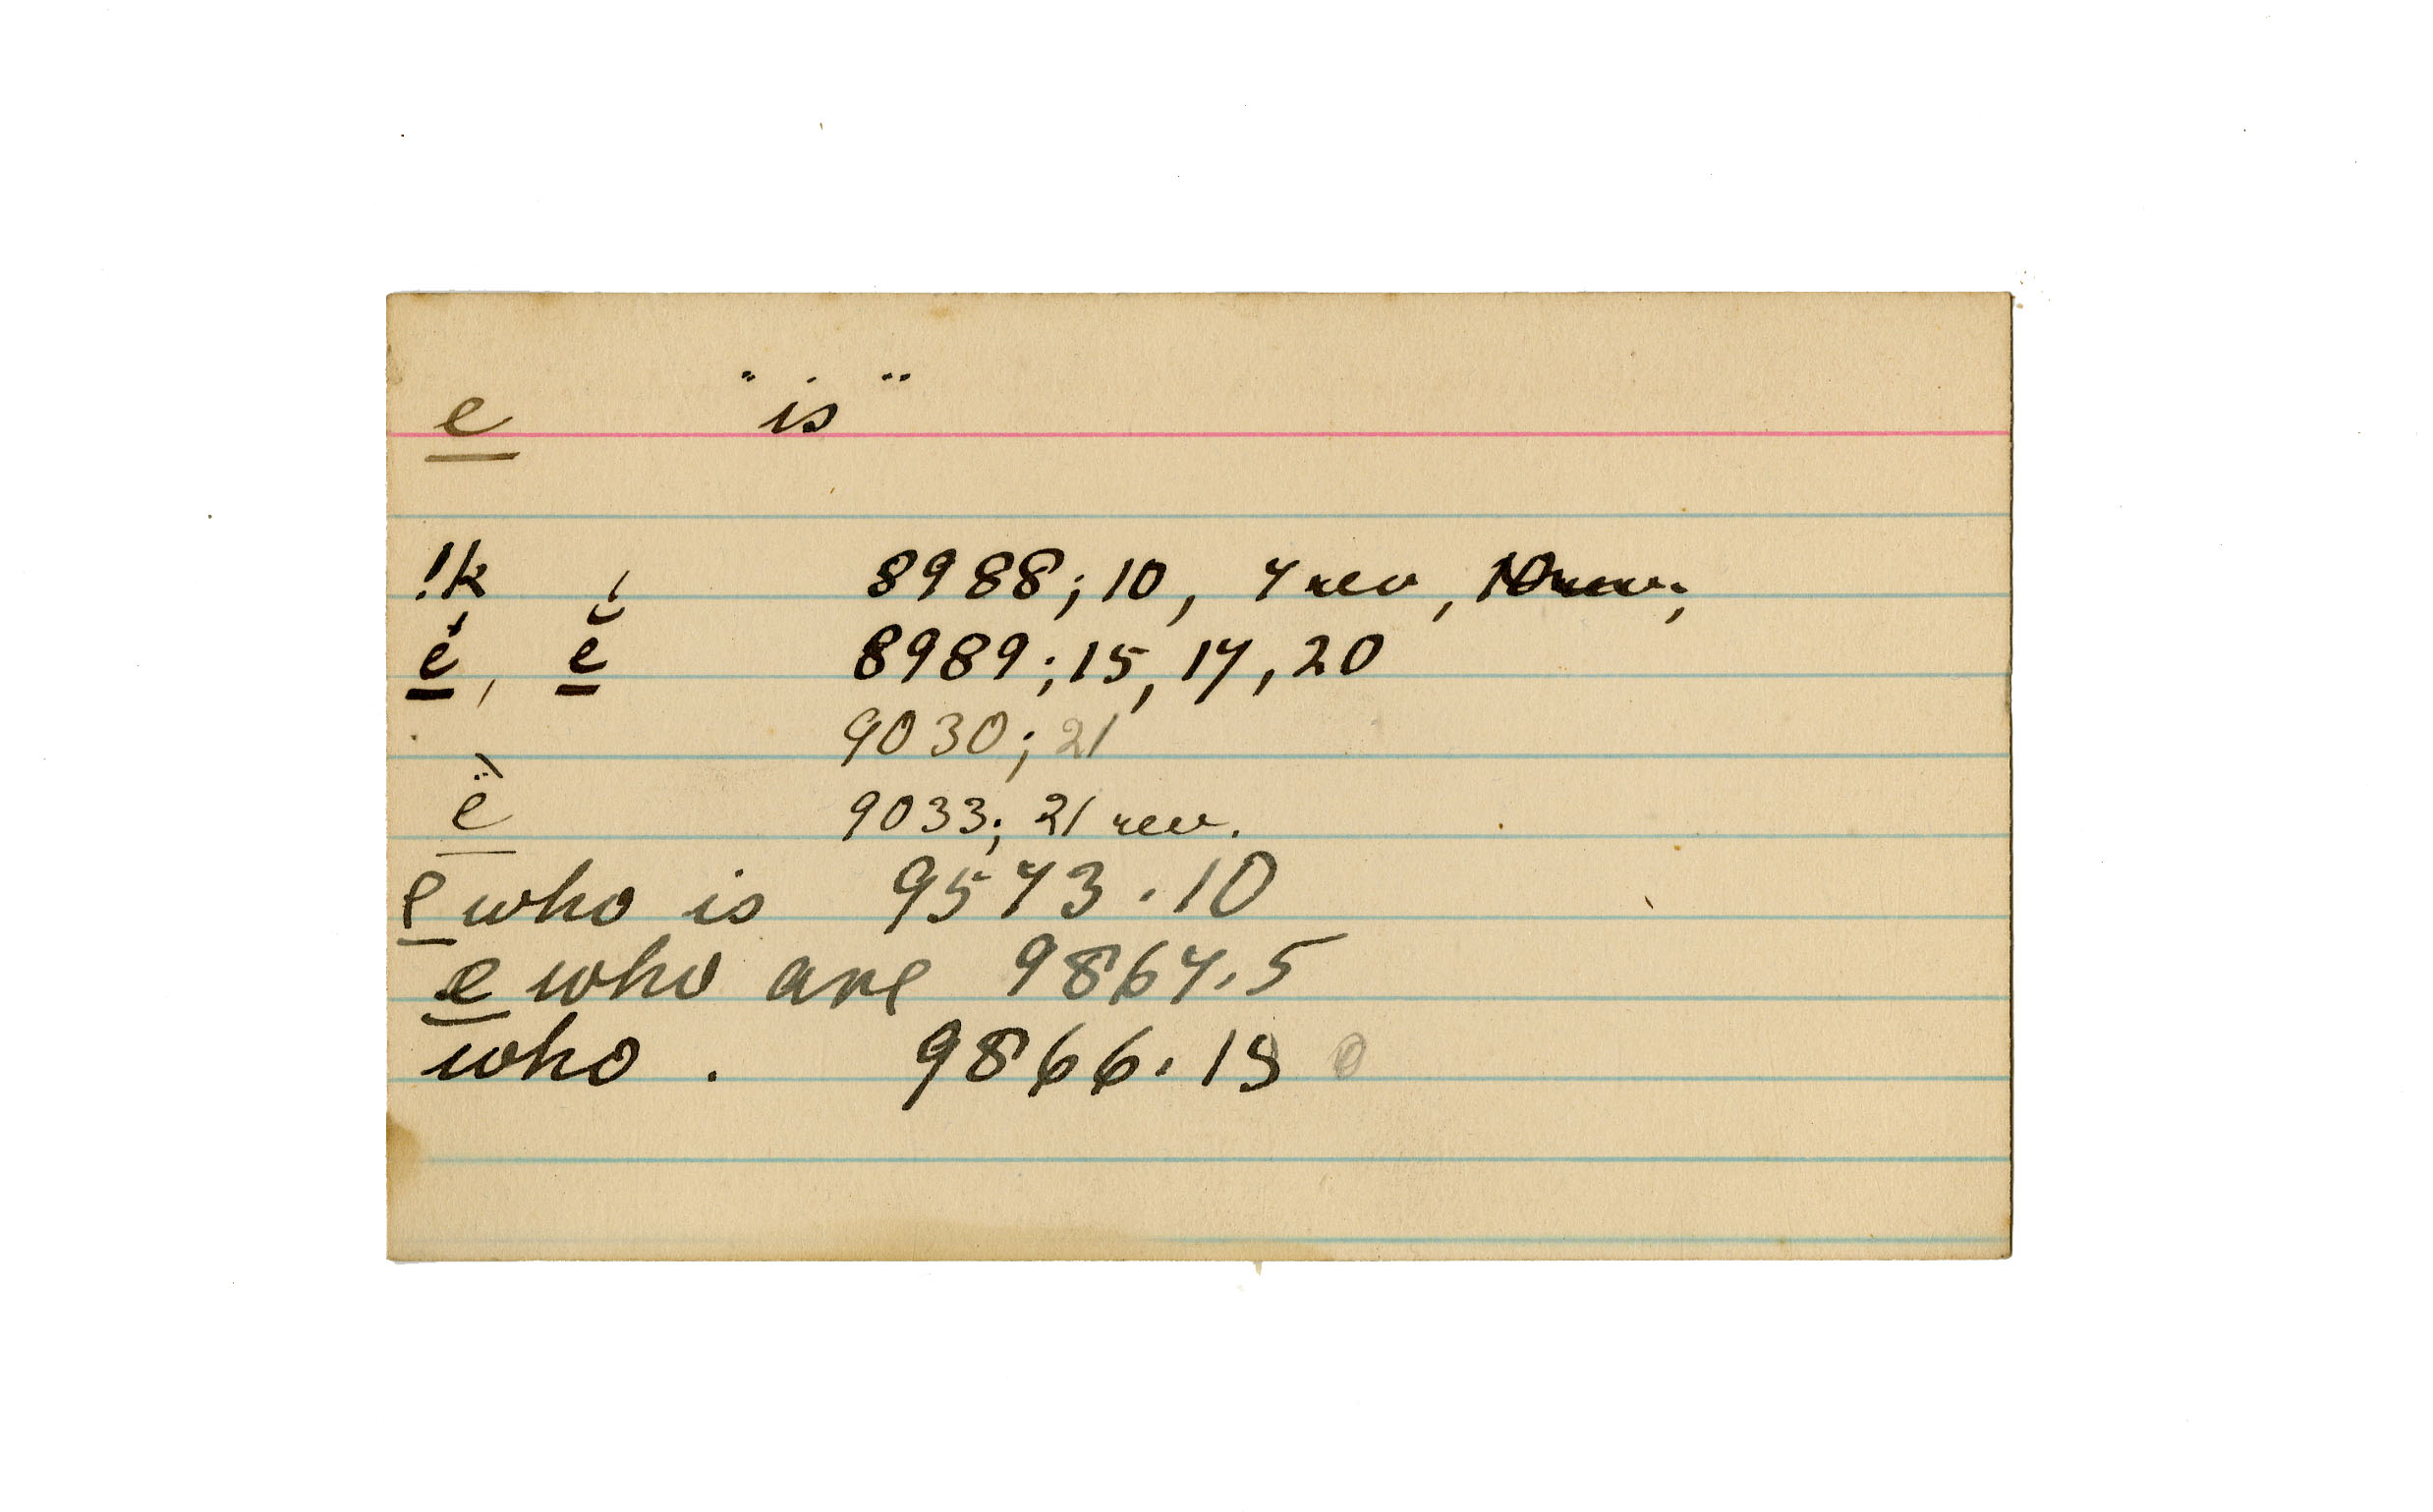 e "is"
!k 8988; 10, 7 rev,
ĕ́, ĕ́ 8989; 15, 17, 20
9030; 21
ë̀ 9033; 21 rev.
e who is 9573.10
e who are 9867.5
who. 9866.